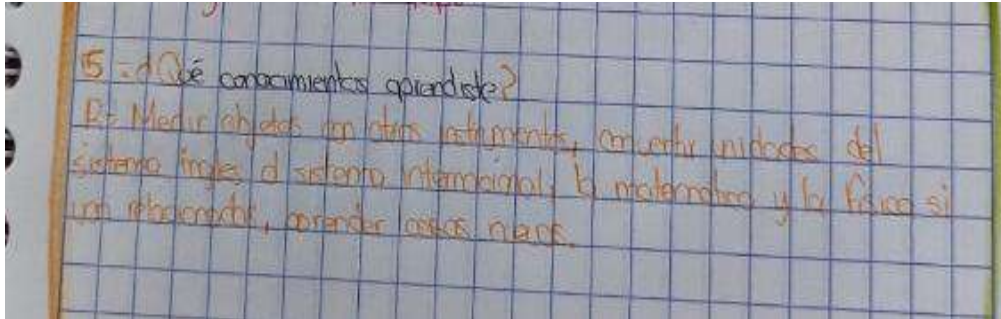 5.- ¿Qué conocimientos aprendiste?
R= Medir objetos con otros instrumentos, convertir unidades del
sistema ingles al sistema internacional, la matematica y la física si
van relacionadas, aprender cosas nuevas.